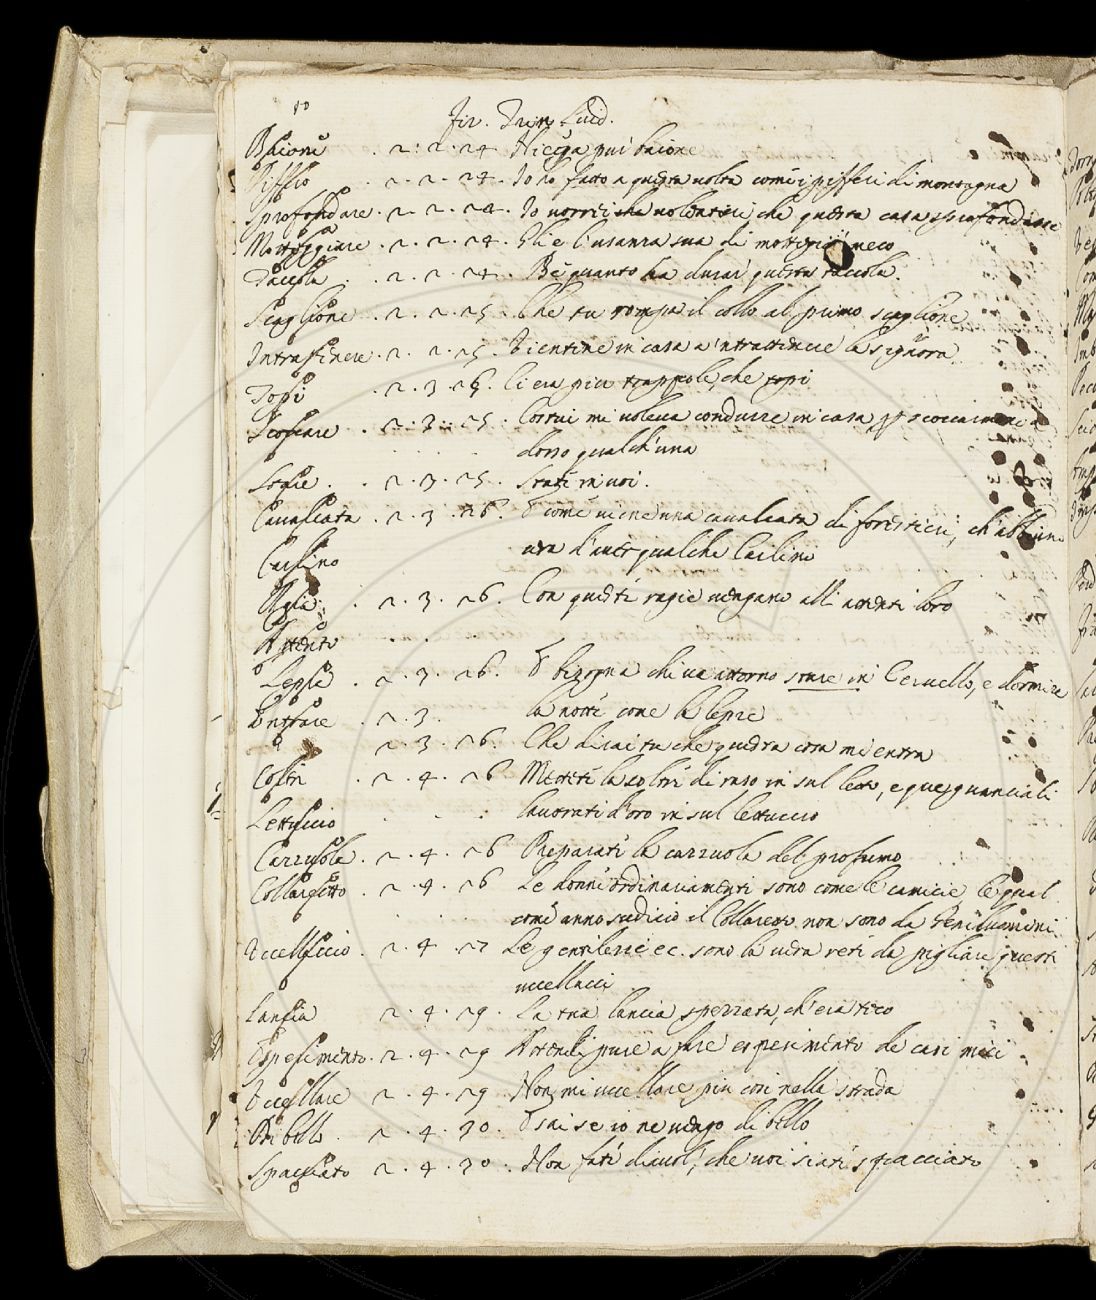 Fir. Trin. Lucid.
Baione . 2. 2. 24. Nicc͠ga piu baione
Piffero . 2. 2. 24. Io ho fatto a questa uolta come i pifferi di montagna
Sprofondare. 2. 2. 24. Io uorrei che uolentieri che questa casa sprofondasse
Motteggiare . 2. 2. 24. Gli è l'usanza sua di motteggiar meco
Taccola . 2. 2. 24. Bè quanto ha durar questa taccola.
Scaglione . 2. 2. 25. Che tu rompa il collo al primo scaglione
Intrattenere. 2. 2. 25. Vientene in casa a 'ntrattenere la signora
Topi . 2. 3. 25. Ci era piu trappole, che topi
Scoccare . 2. 3. 25. Costui mi uoleua condurre in casa p scoccarmene a
dosso qualch'una
Stare . . 2. 3. 25. State in uoi.
Caualcata . 2. 3. 26. E come uiene una caualcata di forestieri, ch'abbiano
Carlino aria d'auer qualche Carlino
Ragie . 2. 3. 26. Con queste ragie uengano alli attenti loro
Attento
Lepre . 2. 3. 26. E bisogna chi ua attorno stare in Ceruello, e dormire
Entrare . 2. 3. la notte come la lepre
2. 3. 26. Che dirai tu che questa cosa mi entra
Coltri . 2. 4. 26 Mettete la coltri di raso in sul letto, e que' guanciali
Lettuccio . lauorati d'oro in sul lettuccio
Cazzuola . 2. 4. 26 Preparate la cazzuola del profumo
Collaretto . 2. 4. 26 Le donne ordinariamente sono come le camicie le qual
com' anno sudicio il Collaretto non sono da Gentiluomini
Vccellaccio . 2. 4 27 Le gentilezze ec. sono la uera rete da pigliare questi
uccellacci
Lancia 2. 4. 29. La tua lancia spezzata, ch'era tico
Esperimento. 2. 4. 29 Attendi pure a fare esperimento de casi miei
Vccellare 2. 4. 29. Non mi uccellare piu cosi nella strada
Di bello . 2. 4. 30. E sai se io ne uengo di bello
Spacciato 2. 4. 30. Non fate diauol', che uoi siate spacciato